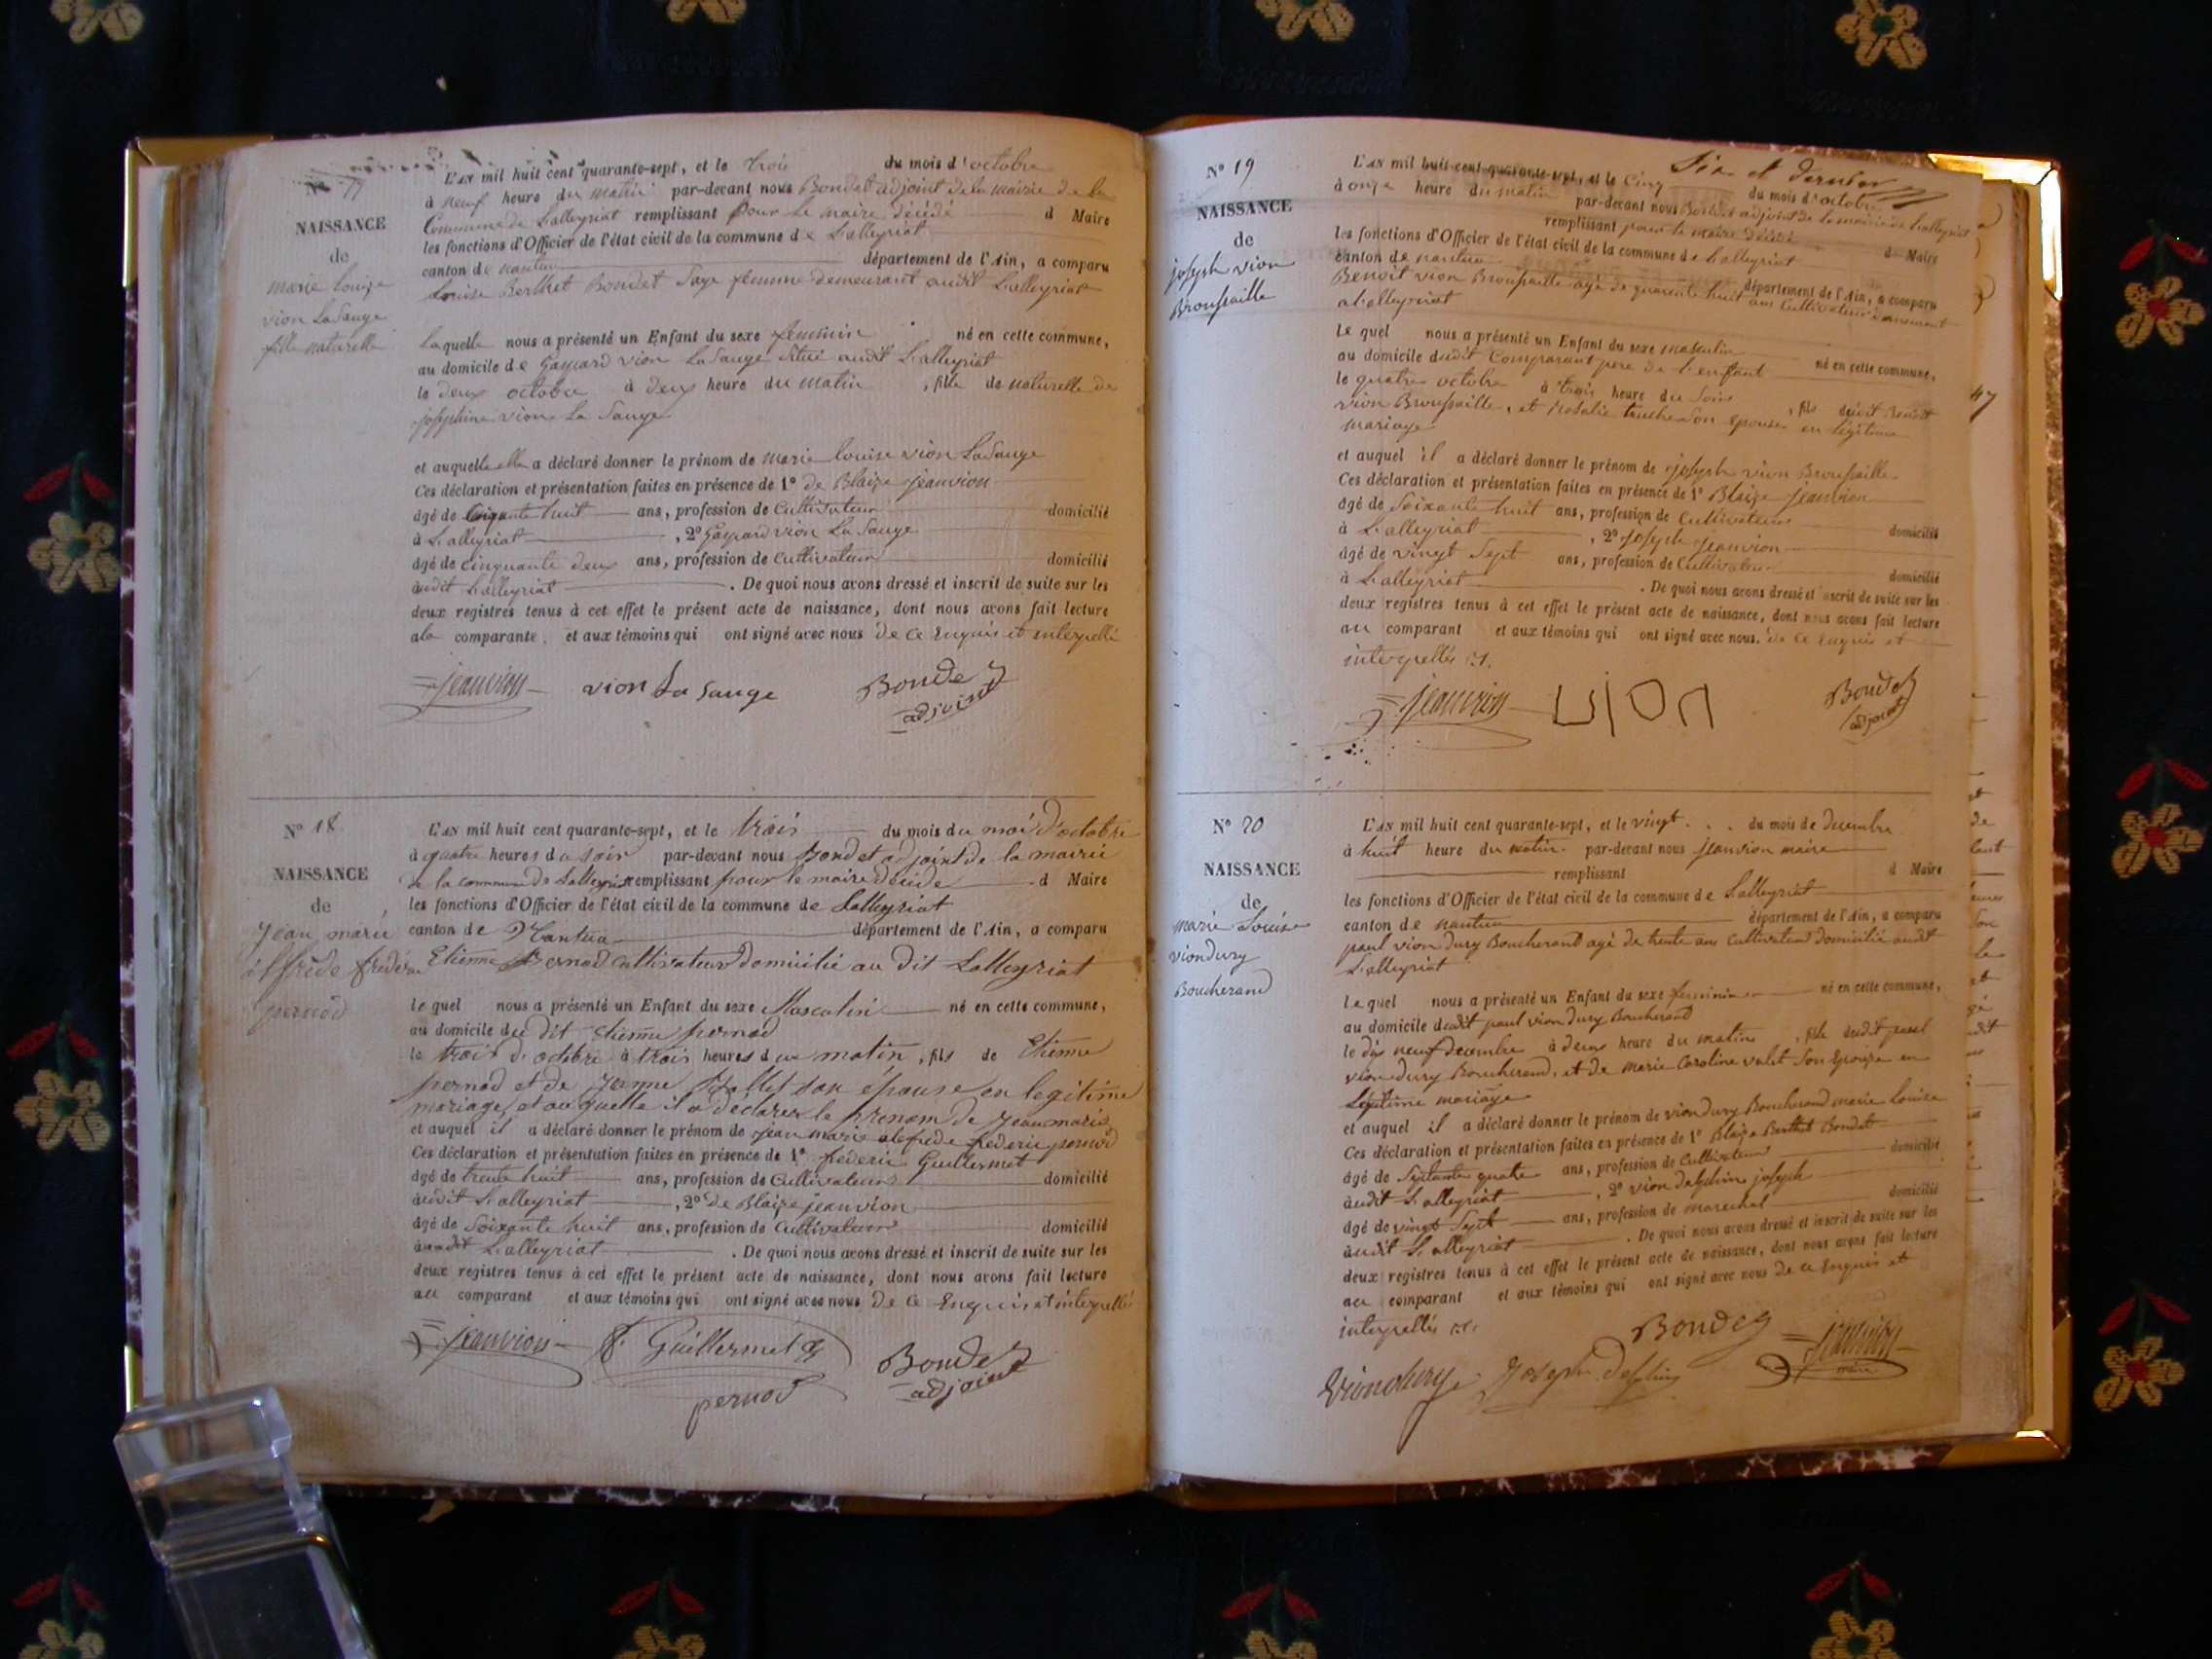 N° 17
NAISSANCE
de
marie louise
vion La Sauge
fille naturelle
L'AN mil huit cent quarante-sept, et le trois du mois d'octobre
à neuf heure du matin par-devant nous Bondet adjoint de la mairie de la
Commune de Lalleyriat remplissant pour le maire décédé d Maire
les fonctions d'Officier de l'état civil de la commune de Lalleyriat
canton de nantua département de l'Ain, a comparu
Louise Berthet Bondet Sage femme demeurant audit Lalleyriat
Laquelle nous a présenté un Enfant du sexe feminin né en cette commune,
au domicile de Gaspard vion La Sauge Situé audit Lalleyriat
le deux octobre à deux heure du matin, fille de naturelle de
josephine vion La Sauge
et auquelle elle a déclaré donner le prénom de marie louise vion La Sauge
Ces déclaration et présentation faites en présence de 1° de Blaize jeanvion
âgé de huit ans, profession de Cultivateur domicilié
à Lalleyriat, 2° Gaspard vion La Sauge
âgé de cinquante deux ans, profession de Cultivateur domicilié
audit Lalleyriat. De quoi nous avons dressé et inscrit de suite sur les
deux registres tenus à cet effet le présent acte de naissance, dont nous avons fait lecture
a la comparante, et aux témoins qui ont signé avec nous de ce Enquis et interpellé
jeanvion vion La Sauge Bondet
adjoint
N° 18
NAISSANCE
de
Jean marie
alfrède frédéric
pernod
L'AN mil huit cent quarante-sept, et le trois du mois du moi d'octobre
à quatre heures du soir par-devant nous Bondet adjoint de la mairie
de la commune de Lalleyriat remplissant pour le maire décédé d Maire
les fonctions d'Officier de l'état civil de la commune de Lalleyriat
canton de Nantua département de l'Ain, a comparu
Etienne Pernod Cultivateur domicilié au dit Lalleyriat
le quel nous a présenté un Enfant du sexe Masculin né en cette commune,
au domicile du dit etienne pernod
le trois d'octobre à trois heures du matin, fils de Etienne
pernod et de Jeanne Ballet son épouse en legitime
mariage, et au quelle il a déclarer le prenom de jean marie
et auquel il a déclaré donner le prénom de jean marie alefrede frederic pernod
Ces déclaration et présentation faites en présence de 1° fréderic Guillermet
âgé de trente huit ans, profession de Cultivateur domicilié
audit Lalleyriat, 2° de Blaize jeanvion
âgé de Soixante huit ans, profession de Cultivateur domicilié
audit Lalleyriat. De quoi nous avons dressé et inscrit de suite sur les
deux registres tenus à cet effet le présent acte de naissance, dont nous avons fait lecture
au comparant et aux témoins qui ont signé avec nous de ce Enquis et interpellé
jeanvion f. Guillermet Bondet
pernod adjoint
Six et dernier
N° 19
NAISSANCE
de
joseph vion
Broussaille
L'AN mil huit cent quarante-sept, et le cinq du mois d'octobre
à onze heure du matin par-devant nous Bondet adjoint de la mairie de Lalleyriat
remplissant pour le maire décédé d Maire
les fonctions d'Officier de l'état civil de la commune de Lalleyriat
canton de nantua département de l'Ain, a comparu
Benoit vion Broussaille agé de quarante huit ans Cultivateur
a Lalleyriat
Le quel nous a présenté un Enfant du sexe masculin né en cette commune,
au domicile dudit Comparant pere de l'enfant
le quatre octobre à trois heure du Soir, fils dudit Benoit
vion Broussaille, et Rosalie Son épouse en légitime
mariage
et auquel il a déclaré donner le prénom de joseph vion Broussaille
Ces déclaration et présentation faites en présence de 1° Blaize jeanvion
âgé de Soixante huit ans, profession de Cultivateur domicilié
à Lalleyriat, 2° joseph jeanvion
âgé de vingt Sept ans, profession de Cultivateur domicilié
à Lalleyriat. De quoi nous avons dressé et inscrit de suite sur les
deux registres tenus à cet effet le présent acte de naissance, dont nous avons fait lecture
au comparant et aux témoins qui ont signé avec nous. de ce enquis et
interpellés
jeanvion vion Bondet
adjoint
N° 20
NAISSANCE
de
marie Louise
viondury
Boucherand
L'AN mil huit cent quarante-sept, et le vingt du mois de decembre
à huit heure du matin par-devant nous jeanvion maire
remplissant d Maire
les fonctions d'Officier de l'état civil de la commune de Lalleyriat
canton de nantua département de l'Ain, a comparu
paul vion dury Boucherand agé de trente ans Cultivateur domicilié audit
Lalleyriat
Le quel nous a présenté un Enfant du sexe feminin né en cette commune,
au domicile dudit paul vion dury Boucherand
le dix neuf decembre à deux heure du matin, fille dudit paul
vion dury Boucherand, et de marie Caroline valet Son Epouse en
Légitime mariage
et auquel il a déclaré donner le prénom de vion dury Boucherand marie Louise
Ces déclaration et présentation faites en présence de 1° Blaize Berthet Bondet
âgé de Septante quatre ans, profession de Cultivateur domicilié
audit Lalleyriat, 2° vion dalphin joseph
âgé de vingt Sept ans, profession de marechal domicilié
audit Lalleyriat. De quoi nous avons dressé et inscrit de suite sur les
deux registres tenus à cet effet le présent acte de naissance, dont nous avons fait lecture
au comparant et aux témoins qui ont signé avec nous de ce Enquis et
interpellés
Bondet jeanvion
maire
Viondury Joseph